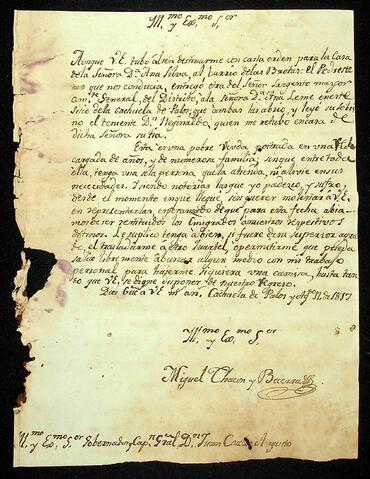 Yll.mo y Ex.mo S.or
Aunque V.E. tubo abien destinarme con carta orden para la Casa
dela Señora D.a Ana Silva, al barrio delas Brotas: el Pedrette
que nos conducia, entrego otra del Señor Sargento mayor
General, del Distrito, ala Señora D.a Ana Leme eneste
Sitio dela Cachuela de Palos, que ambas las abrio, y leyó susobri
no el teniente D.n Reginaldo, quien me retubo encasa de
dicha Señora sutia.
Esta es vna pobre Viuda postrada en vna
cargada de años, y de numerosa familia; sinque entre toda
ella, tenga vna sola persona quela atienda, ni alivie ensus
necesidades. Y siendo notorias lasque yo padezco, y sufro,
desde el momento que llegué, sin querer molestar a V.E.
en representarlas, enterandome deque para esta fecha abia-
mos de ser restituidos los Emigrados anuestros respectivos
destinos. Le suplico tenga abien, si fuere desu superior agra-
do, el trasladarme a otro Quartel, opermitirme que pueda
salir libremente abuscar algun medio con mi trabajo
personal para hazerme siquiera vna camisa, hasta tan
to que V.E. se digne disponer de nuestro regreso.
Dios Gue. a V.E. m.s an.s Cachuela de Palos y 11 de 1817
Yll.mo y Ex. S.or
Miguel Chacon y Becerra
Yll.mo y Ex.mo S.or Gobernador y Cap.n Gral D.n Juan Augusto